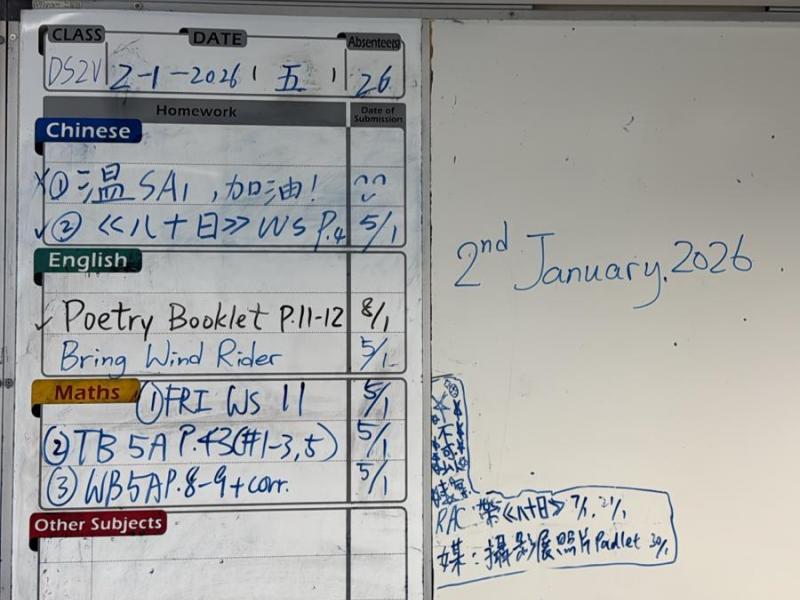 CLASS DATE Absentee(s)
DS2V 2-1-2026 (五) 26
Homework Date of Submission
Chinese
① 温 SA1，加油！
② 《八十日》 WS P.4 5/1
English
Poetry Booklet P.11-12 8/1
Bring Wind Rider 5/1
Maths
① FRI WS 11 5/1
② TB 5A P.43(#1-3,5) 5/1
③ WB5AP.8-9+corr. 5/1
Other Subjects
2nd January, 2026
不可
RAC 《八十日》 7/1, 21/1
媒：攝影展照片Padlet 30/1